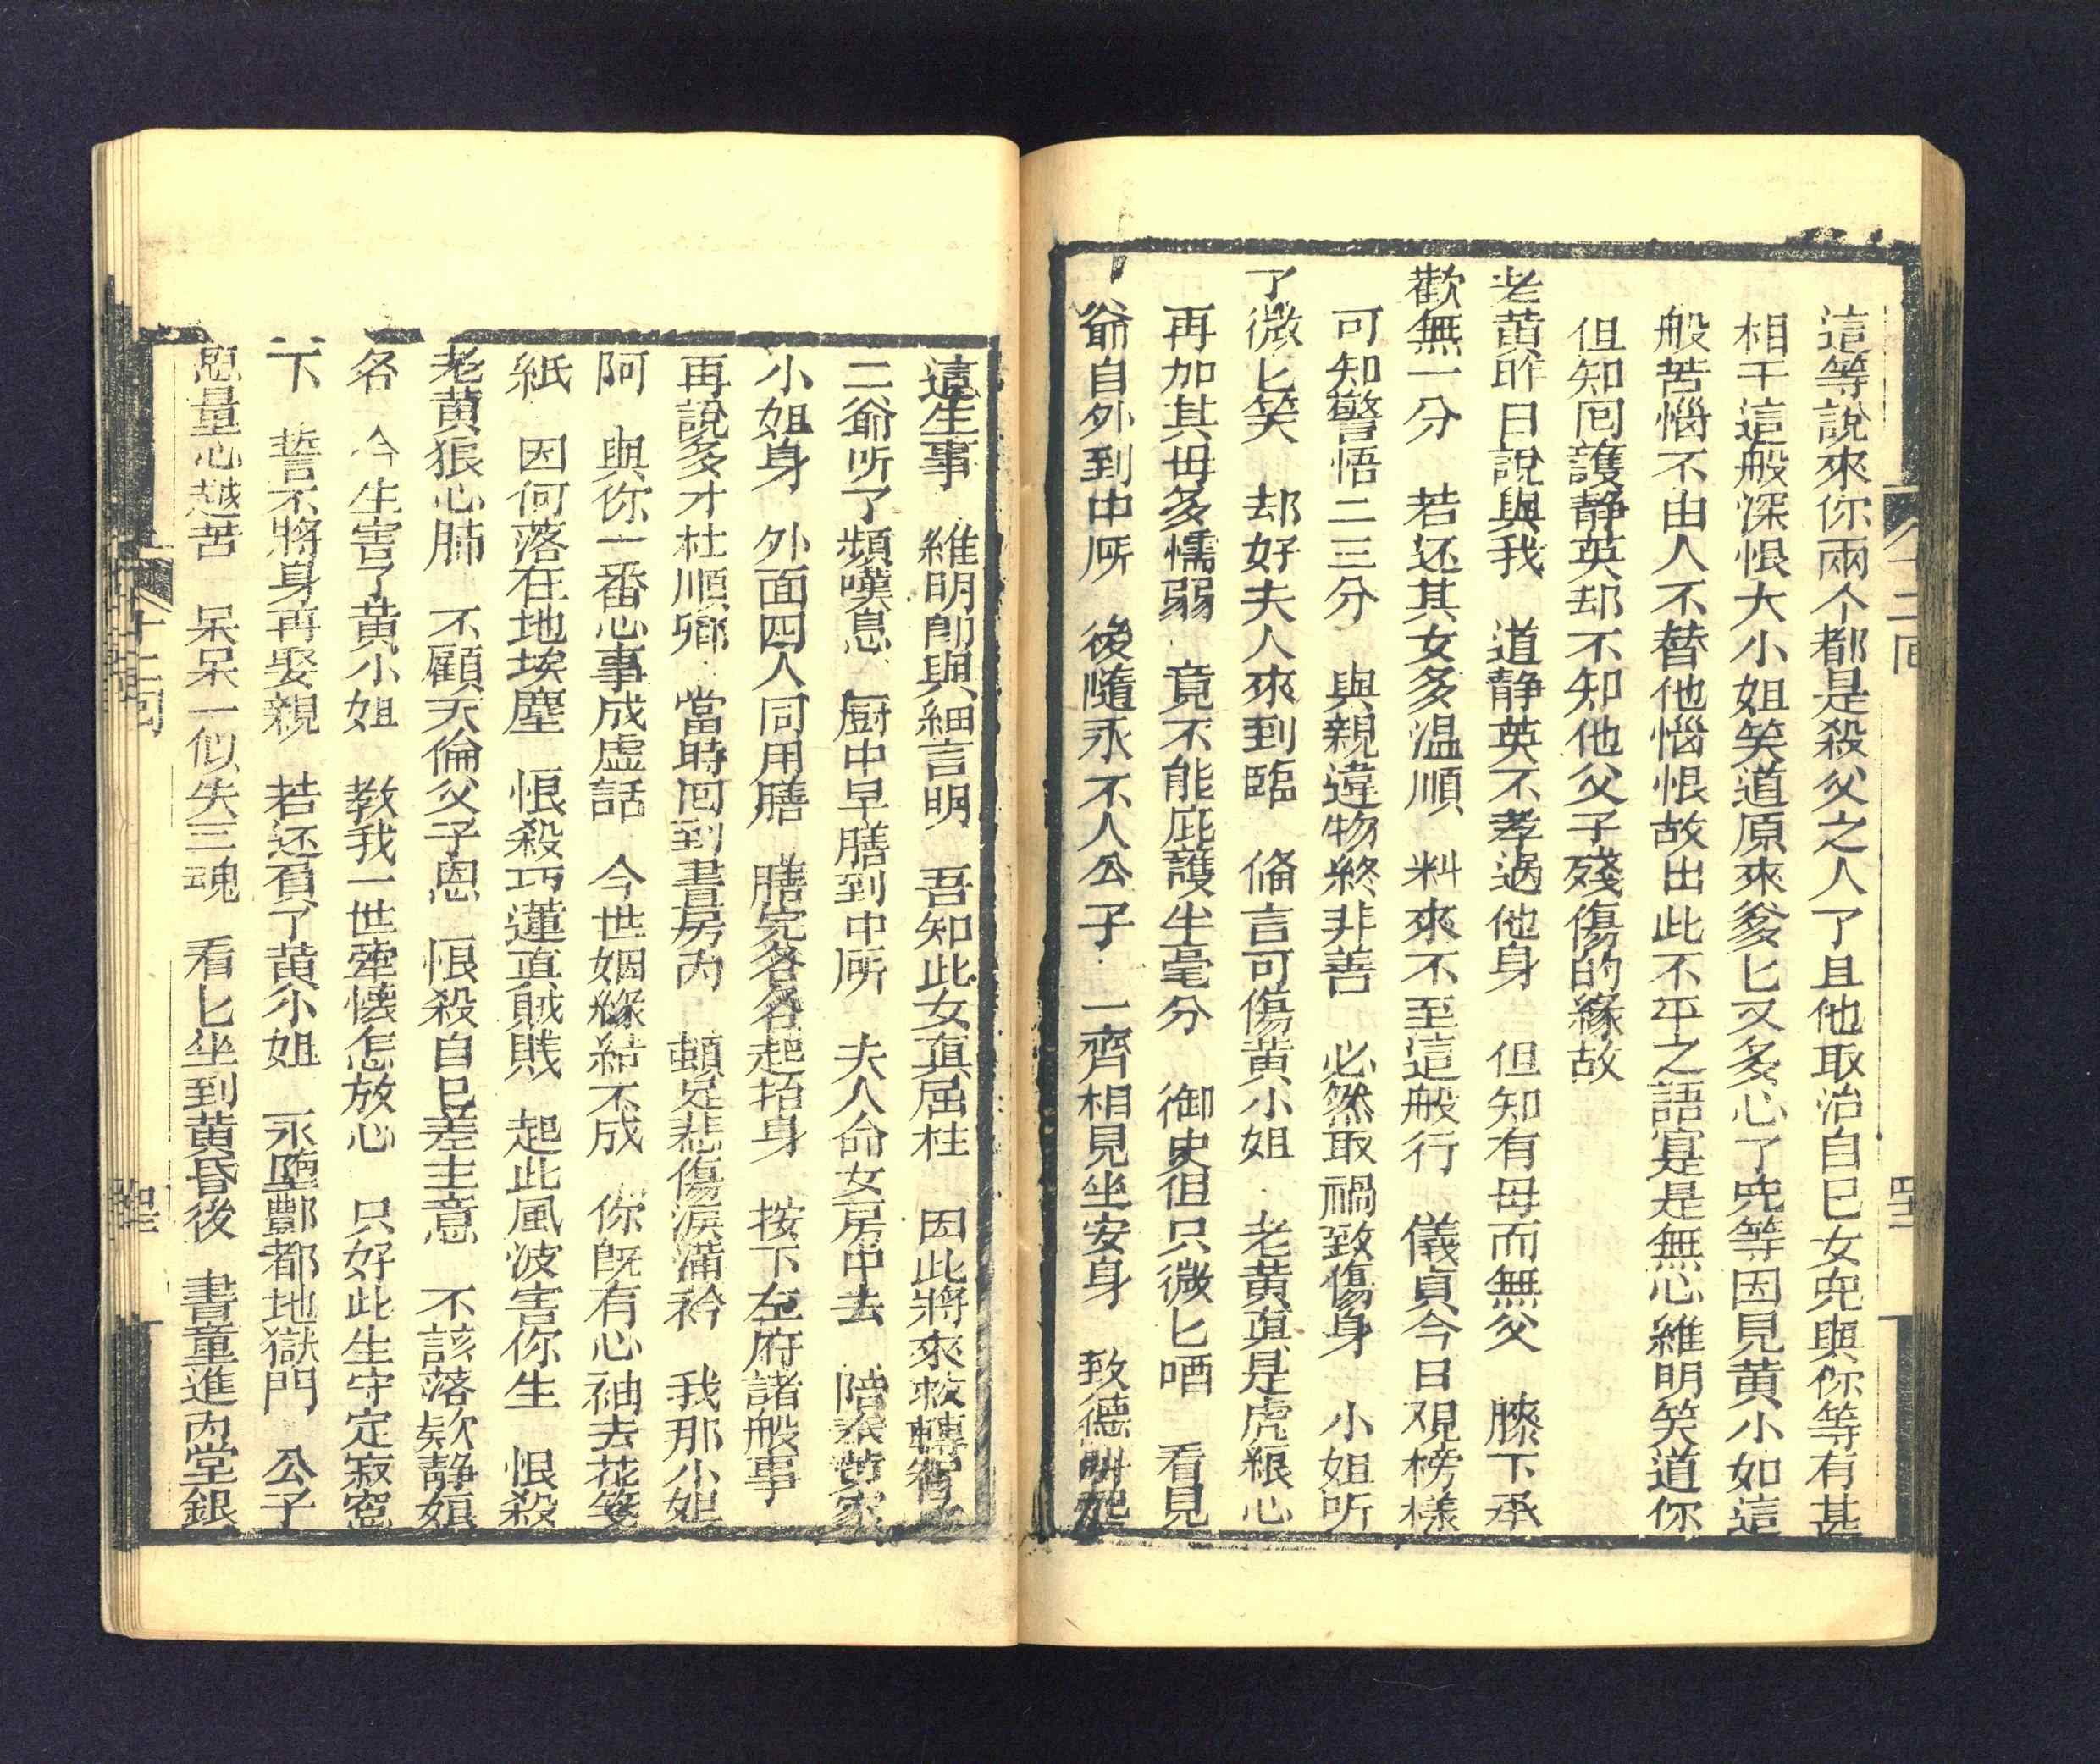 這等說來你兩个都是殺父之人了且他取治自巳女兒與你等有甚
相干這般深恨大小姐笑道原來爹匕又多心了兒等因見黃小如這
般苦惱不由人不替他惱恨故出此不平之語寔是無心維明笑道你
但知回護静英却不知他父子殘傷的緣故
老黃昨日說與我　道静英不孝過他身　但知有母而無父　膝下承
歡無一分　若还其女多温順　料來不至這般行　儀貞今日覌榜樣
可知警悟二三分　與親違物終非善　必然取禍致傷身　小姐听
了微匕笑　却好夫人來到臨　俻言可傷黃小姐　老黃眞是虎狼心
再加其母多懦弱　竟不能庇護半毫分　御史徂只微匕哂　看見
爺自外到中所　後隨永不人公子　一齊相見坐安身　致德
這生事　維明卽與細言明　吾知此女眞屈柱　因此將來救轉
二爺听了頻嘆息　厨中早膳到中所　夫人命女房中去　陪黃家
小姐身　外面四人同用膳　膳完各各起抬身　按下左府諸般事
再說多才杜順卿　當時回到書房內　頓足悲傷淚滿衿　我那小姐
阿　與你一番心事成虚話　今世姻緣結不成　你旣有心袖去花箋
紙　因何落在地埃塵　恨殺巧蓮眞賊賎　起此風波害你生　恨殺
老黃狼心肺　不顧天倫父子恩　恨殺自巳差主意　不該落欵静娟
名　今生害了黃小姐　教我一世牽懷怎放心　只好此生守定寂窓
下　誓不將身再娶親　若还負了黃小姐　永墮酆都地獄門　公子
思量心越苦　呆呆一似失三魂　看匕坐到黃昏後　書童進內堂銀
十二回